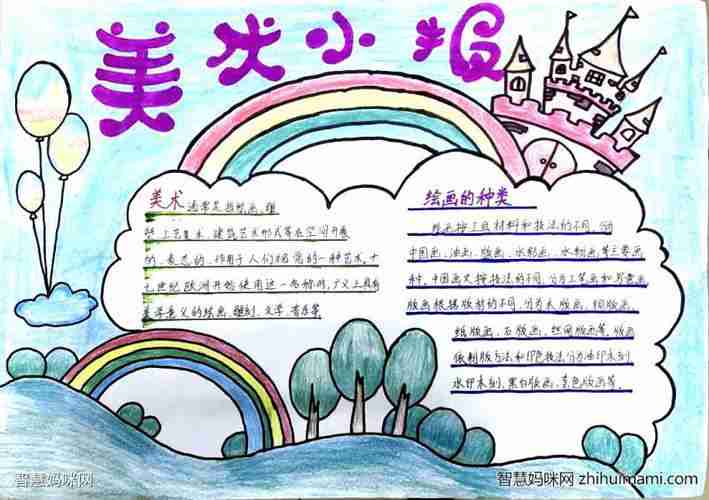 美术小报
美术 通常是指绘画、雕
塑、工艺美术、建筑艺术形式等在空间开展
的、表态的、作用于人们视觉的一种艺术,十
七世纪欧洲开始使用这一名称时,广义上具有
美学意义的绘画、雕刻、文学、音乐等
绘画的种类
绘画按工具材料和技法的不同,分
中国画、油画、版画、水彩画、水粉画等主要画
种。中国画又按技法的不同,分为工笔画和写意画
版画根据版材的不同,分为木版画、铜版画、
纸版画、石版画、丝网版画等,版画
依制版方法和印色技法分为油印木刻
水印木刻、黑白版画、套色版画等。
智慧妈咪网
智慧妈咪网 zhihuimami.com